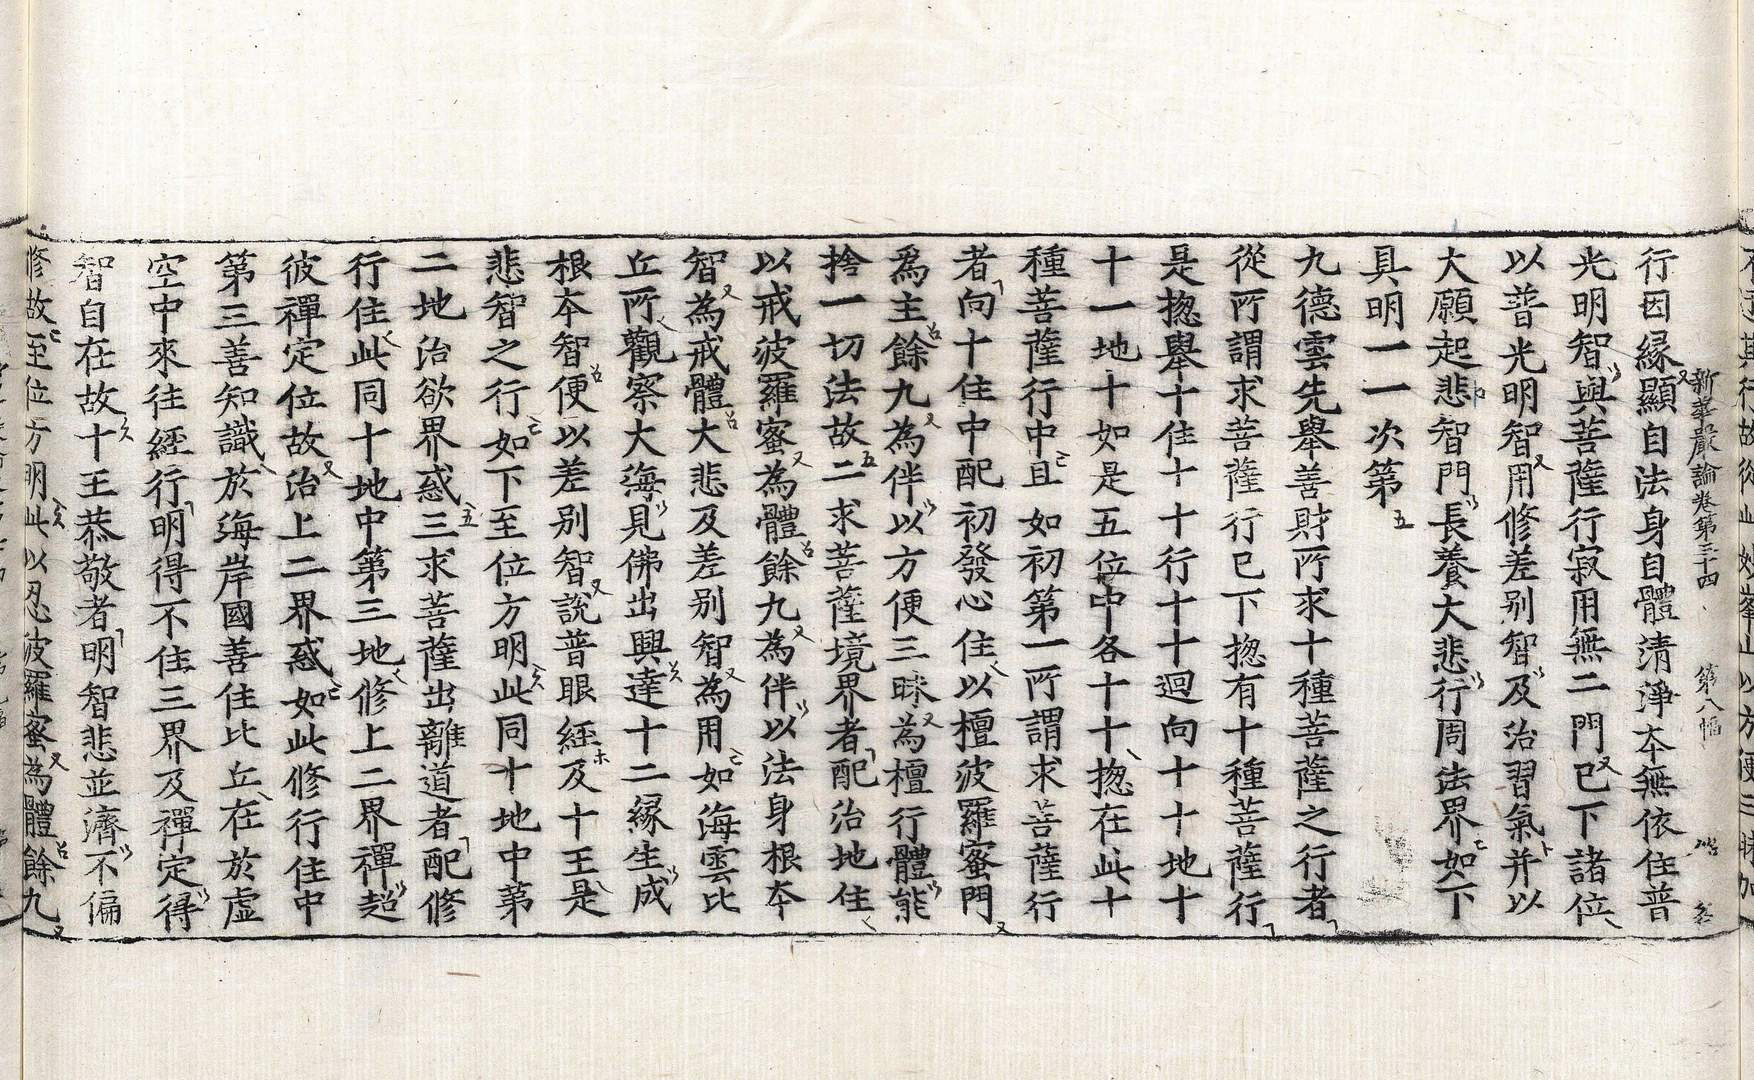 新華嚴論卷第三十四 第八幅
行因緣顯自法身自體清淨本無依住普
光明智與菩薩行寂用無二門已下諸位
以普光明智用修差别智及治習氣并以
大願起悲智門長養大悲行周法界如下
具明一一次第
九德雲先舉善財所求十種菩薩之行者
從所謂求菩薩行已下揔有十種菩薩行
是揔舉十住十十行十十迴向十十地十
十一地十如是五位中各十十揔在此十
種菩薩行中且如初第一所謂求菩薩行
者向十住中配初發心住以檀波羅蜜門
爲主餘九為伴以方便三昧為檀行體能
捨一切法故二求菩薩境界者配治地住
以戒波羅蜜為體餘九為伴以法身根本
智為戒體大悲及差别智為用如海雲比
丘所觀察大海見佛出興達十二緣生成
根本智便以差别智說普眼經及十王是
悲智之行如下至位方明此同十地中第
二地治欲界惑三求菩薩出離道者配修
行住此同十地中第三地修上二界禪超
彼禪定位故治上二界惑如此修行住中
第三善知識於海岸國善住比丘在於虛
空中來往經行明得不住三界及禪定得
智自在故十王恭敬者明智悲並濟不偏
修故至位方明此以忍波羅蜜為體餘九